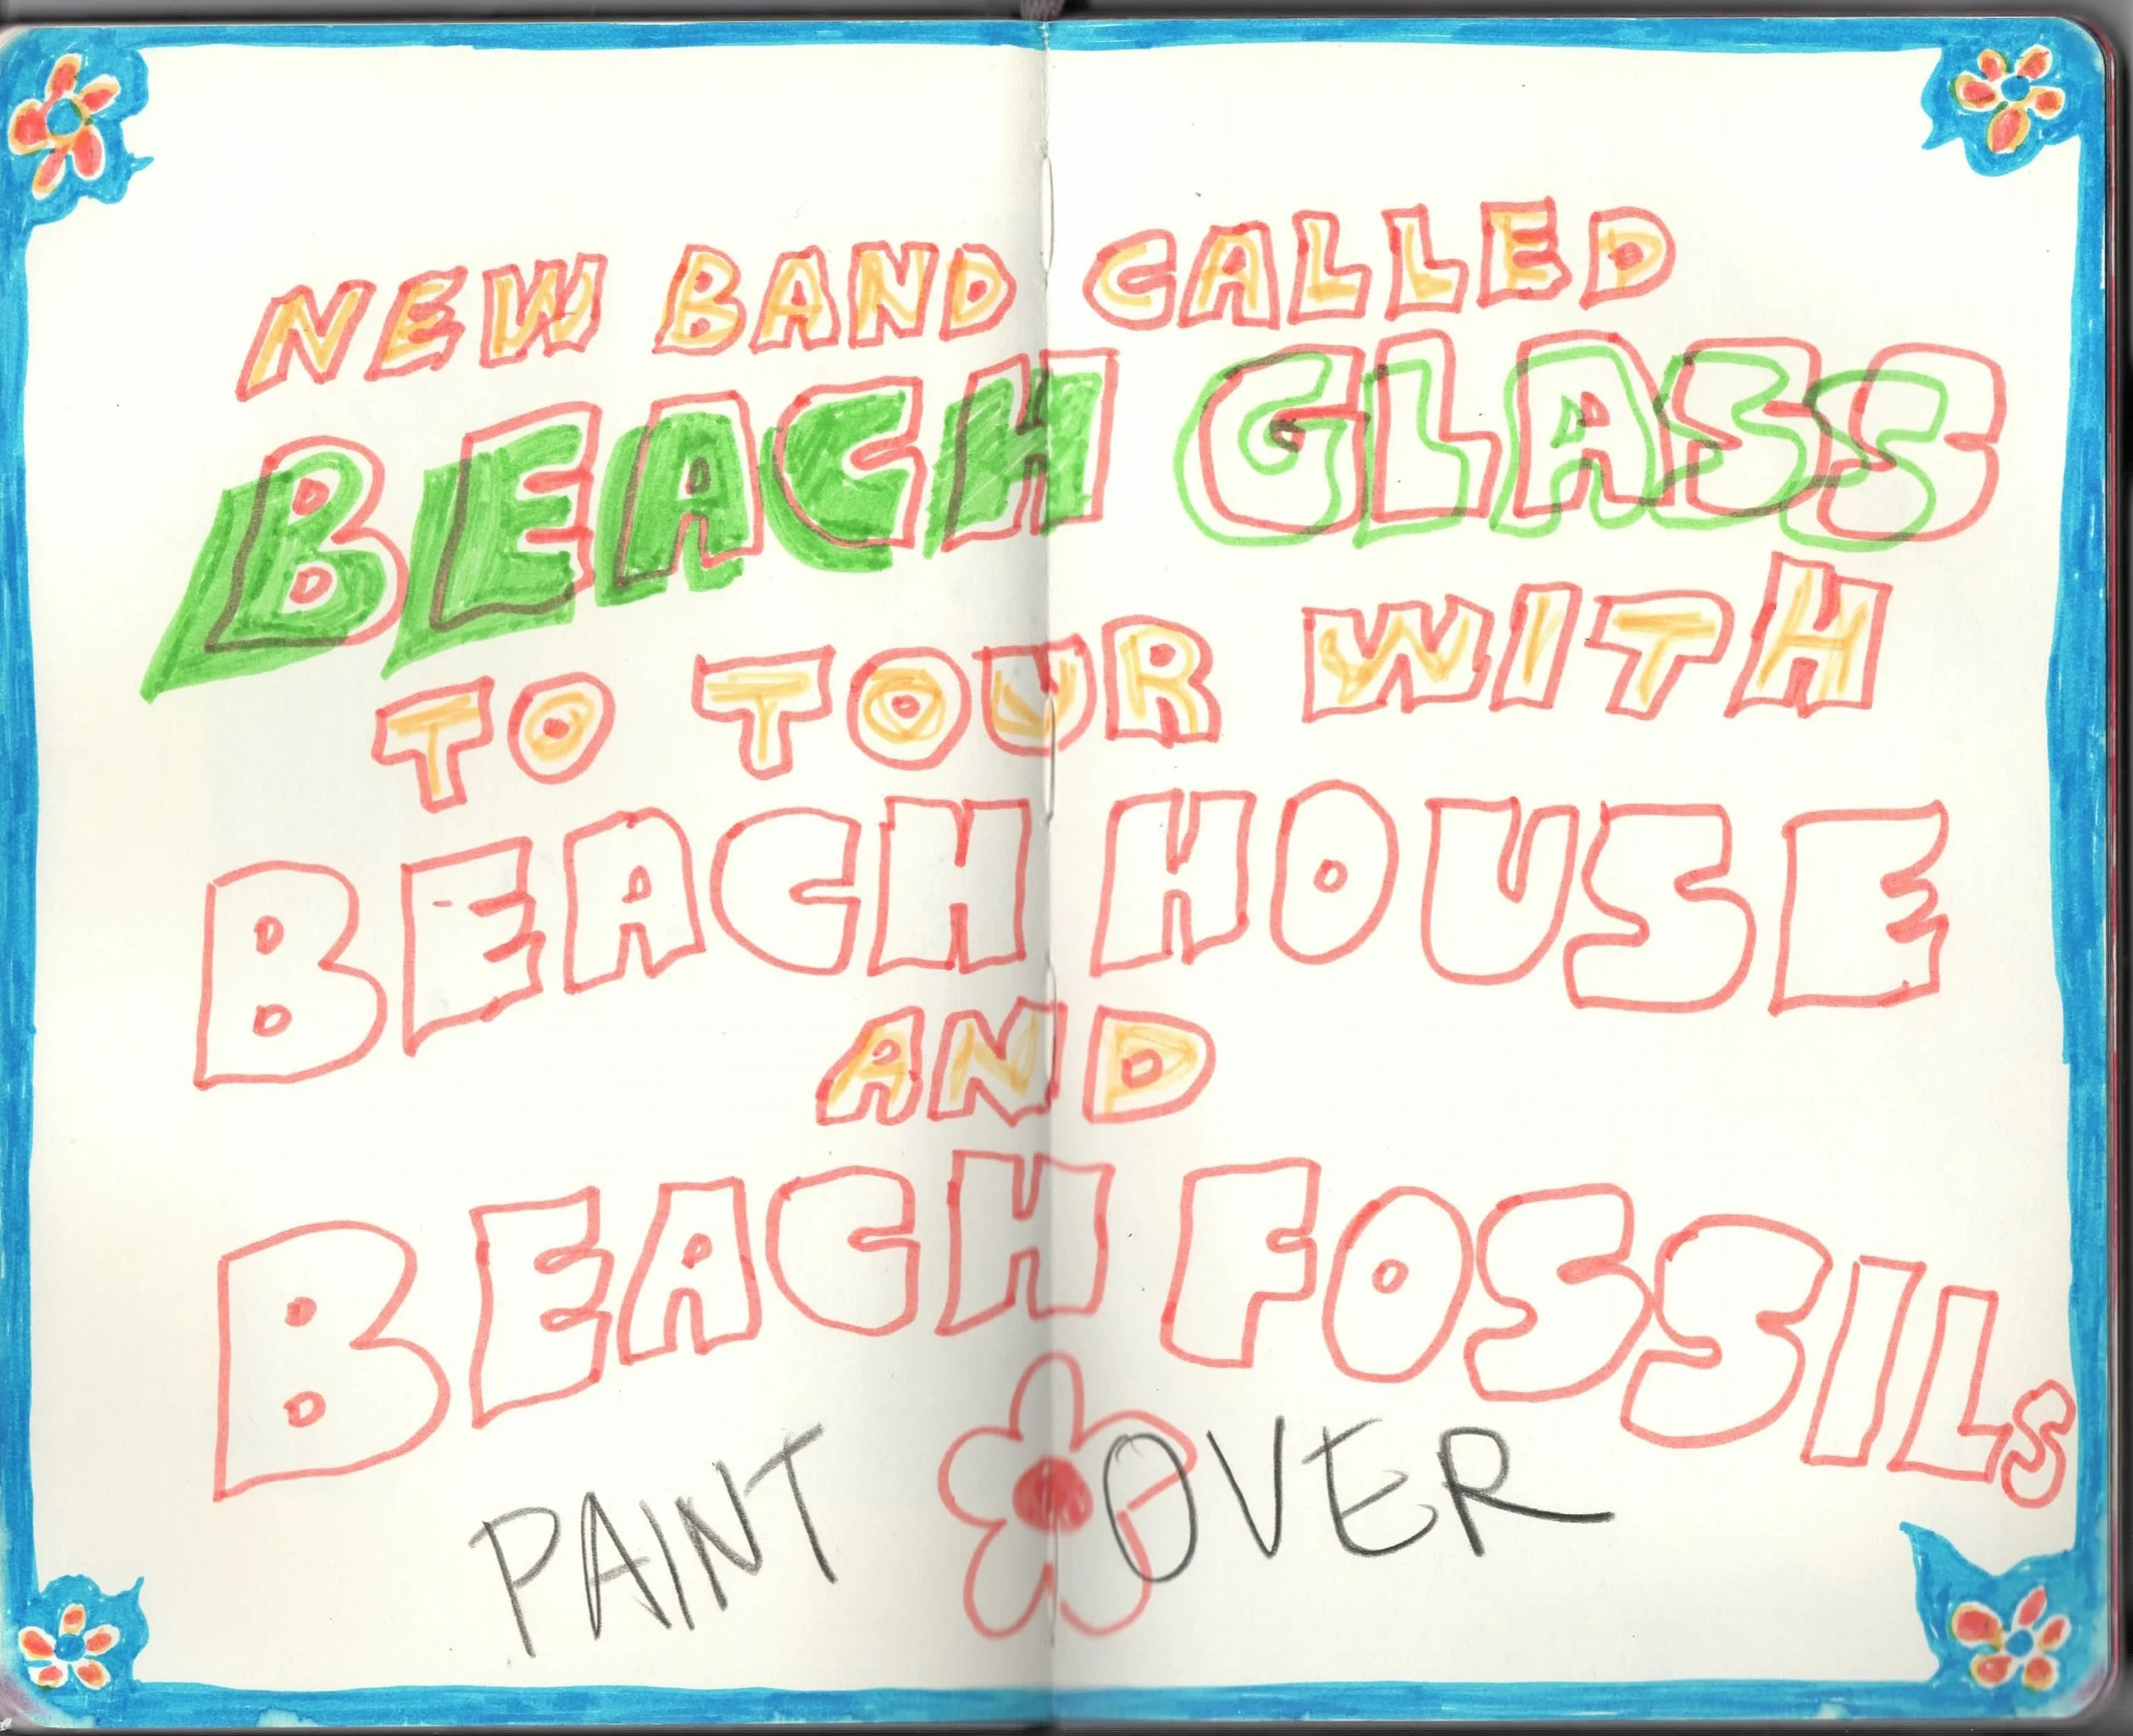 NEW BAND CALLED
BEACH GLASS
TO TOUR WITH
BEACH HOUSE
AND
BEACH FOSSILS
PAINT OVER